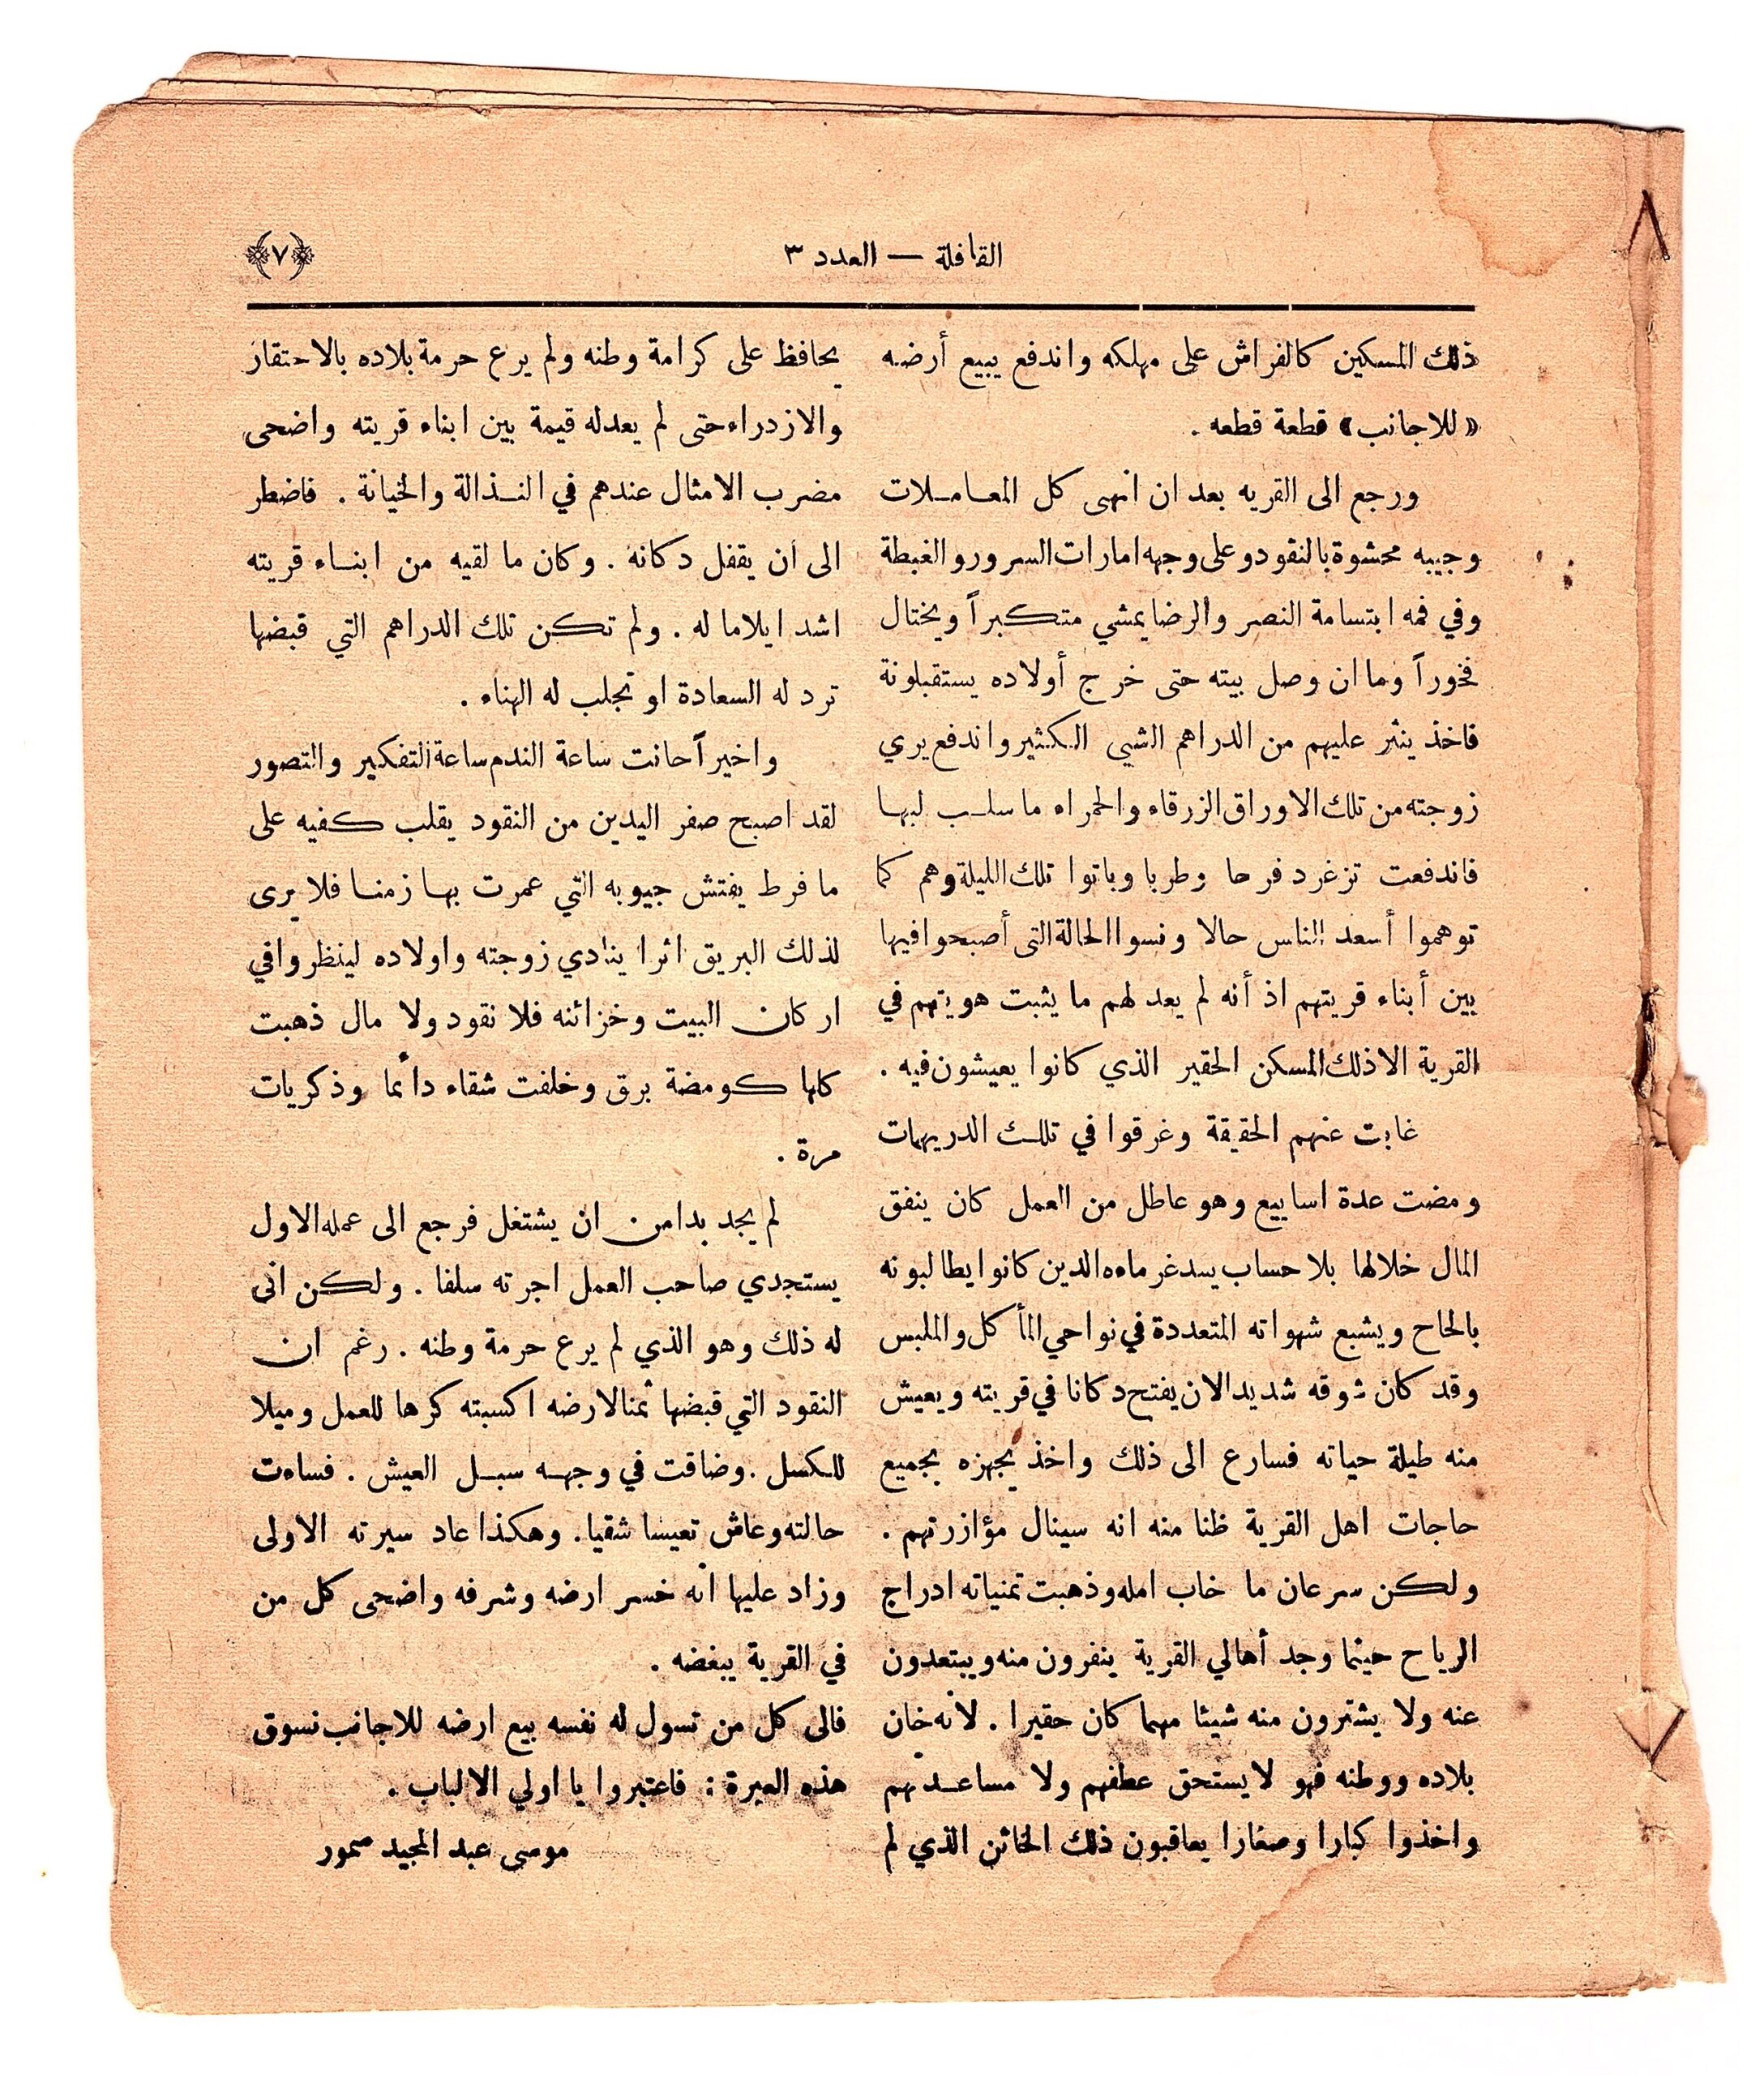 القافلة — العدد ٣
﴿٧﴾
ذلك المسكين كالفراش على مهلكه واندفع يبيع أرضه
« للاجانب » قطعة قطعه .
ورجع الى القريه بعد ان انهى كل المعاملات
وجيبه محشوة بالنقود وعلى وجهه امارات السرور والغبطة
وفي فمه ابتسامة النصر والرضا يمشي متكبراً ويختال
فخوراً وما ان وصل بيته حتى خرج أولاده يستقبلونة
فاخذ ينثر عليهم من الدراهم الشيى الكثير واندفع يري
زوجته من تلك الاوراق الزرقاء والحمراء ما سلب لبها
فاندفعت تزغرد فرحا وطربا وباتوا تلك الليلة وهم كما
توهموا أسعد الناس حالا ونسوا الحالة التى أصبحوا فيها
بين أبناء قريتهم اذ أنه لم يعد لهم ما يثبت هويتهم في
القرية الا ذلك المسكن الحقير الذي كانوا يعيشون فيه .
غابت عنهم الحقيقة وغرقوا في تلك الدريهمات
ومضت عدة اسابيع وهو عاطل من العمل كان ينفق
المال خلالها بلا حساب يسد غرماءه الدين كانوا يطالبونه
بالحاح ويشبع شهواته المتعددة في نواحي المأكل والملبس
وقد كان شوقه شديدا لان يفتح دكانا في قريته ويعيش
منه طيلة حياته فسارع الى ذلك واخذ يجهزه بجميع
حاجات اهل القرية ظنا منه انه سينال مؤازرتهم .
ولكن سرعان ما خاب امله وذهبت تمنياته ادراج
الرياح حينما وجد أهالي القرية ينفرون منه ويبتعدون
عنه ولا يشترون منه شيئا مهما كان حقيرا . لأنه خان
بلاده ووطنه فهو لا يستحق عطفهم ولا مساعدتهم
واخذوا كبارا وصغارا يعاقبون ذلك الخائن الذي لم
يحافظ على كرامة وطنه ولم يرع حرمة بلاده بالاحتقار
والازدراء حتى لم يعد له قيمة بين ابناء قريته واضحى
مضرب الامثال عندهم في النذالة والخيانة . فاضطر
الى أن يقفل دكانه . وكان ما لقيه من ابناء قريته
اشد ايلاما له . ولم تكن تلك الدراهم التي قبضها
ترد له السعادة او تجلب له الهناء .
واخيراً حانت ساعة الندم ساعة التفكير والتصور
لقد اصبح صفر اليدين من النقود يقلب كفيه على
ما فرط يفتش جيوبه التي عمرت بها زمنا فلا يرى
لذلك البريق اثرا ينادي زوجته واولاده لينظروا في
اركان البيت وخزائنه فلا نقود ولا مال ذهبت
كلها كومضة برق وخلفت شقاء دائما وذكريات
مرة .
لم يجد بدا من ان يشتغل فرجع الى عمله الاول
يستجدي صاحب العمل اجرته سلفا . ولكن انى
له ذلك وهو الذي لم يرع حرمة وطنه . رغم ان
النقود التي قبضها ثمنا لارضه اكسبته كرها للعمل وميلا
للكسل . وضاقت في وجهه سبل العيش . فساءت
حالته وعاش تعيسا شقيا . وهكذا عاد سيرته الاولى
وزاد عليها انه خسر ارضه وشرفه واضحى كل من
في القرية يبغضه .
فالى كل من تسول له نفسه بيع ارضه للاجانب نسوق
هذه العبرة : فاعتبروا يا اولي الالباب .
موسى عبد المجيد سمور